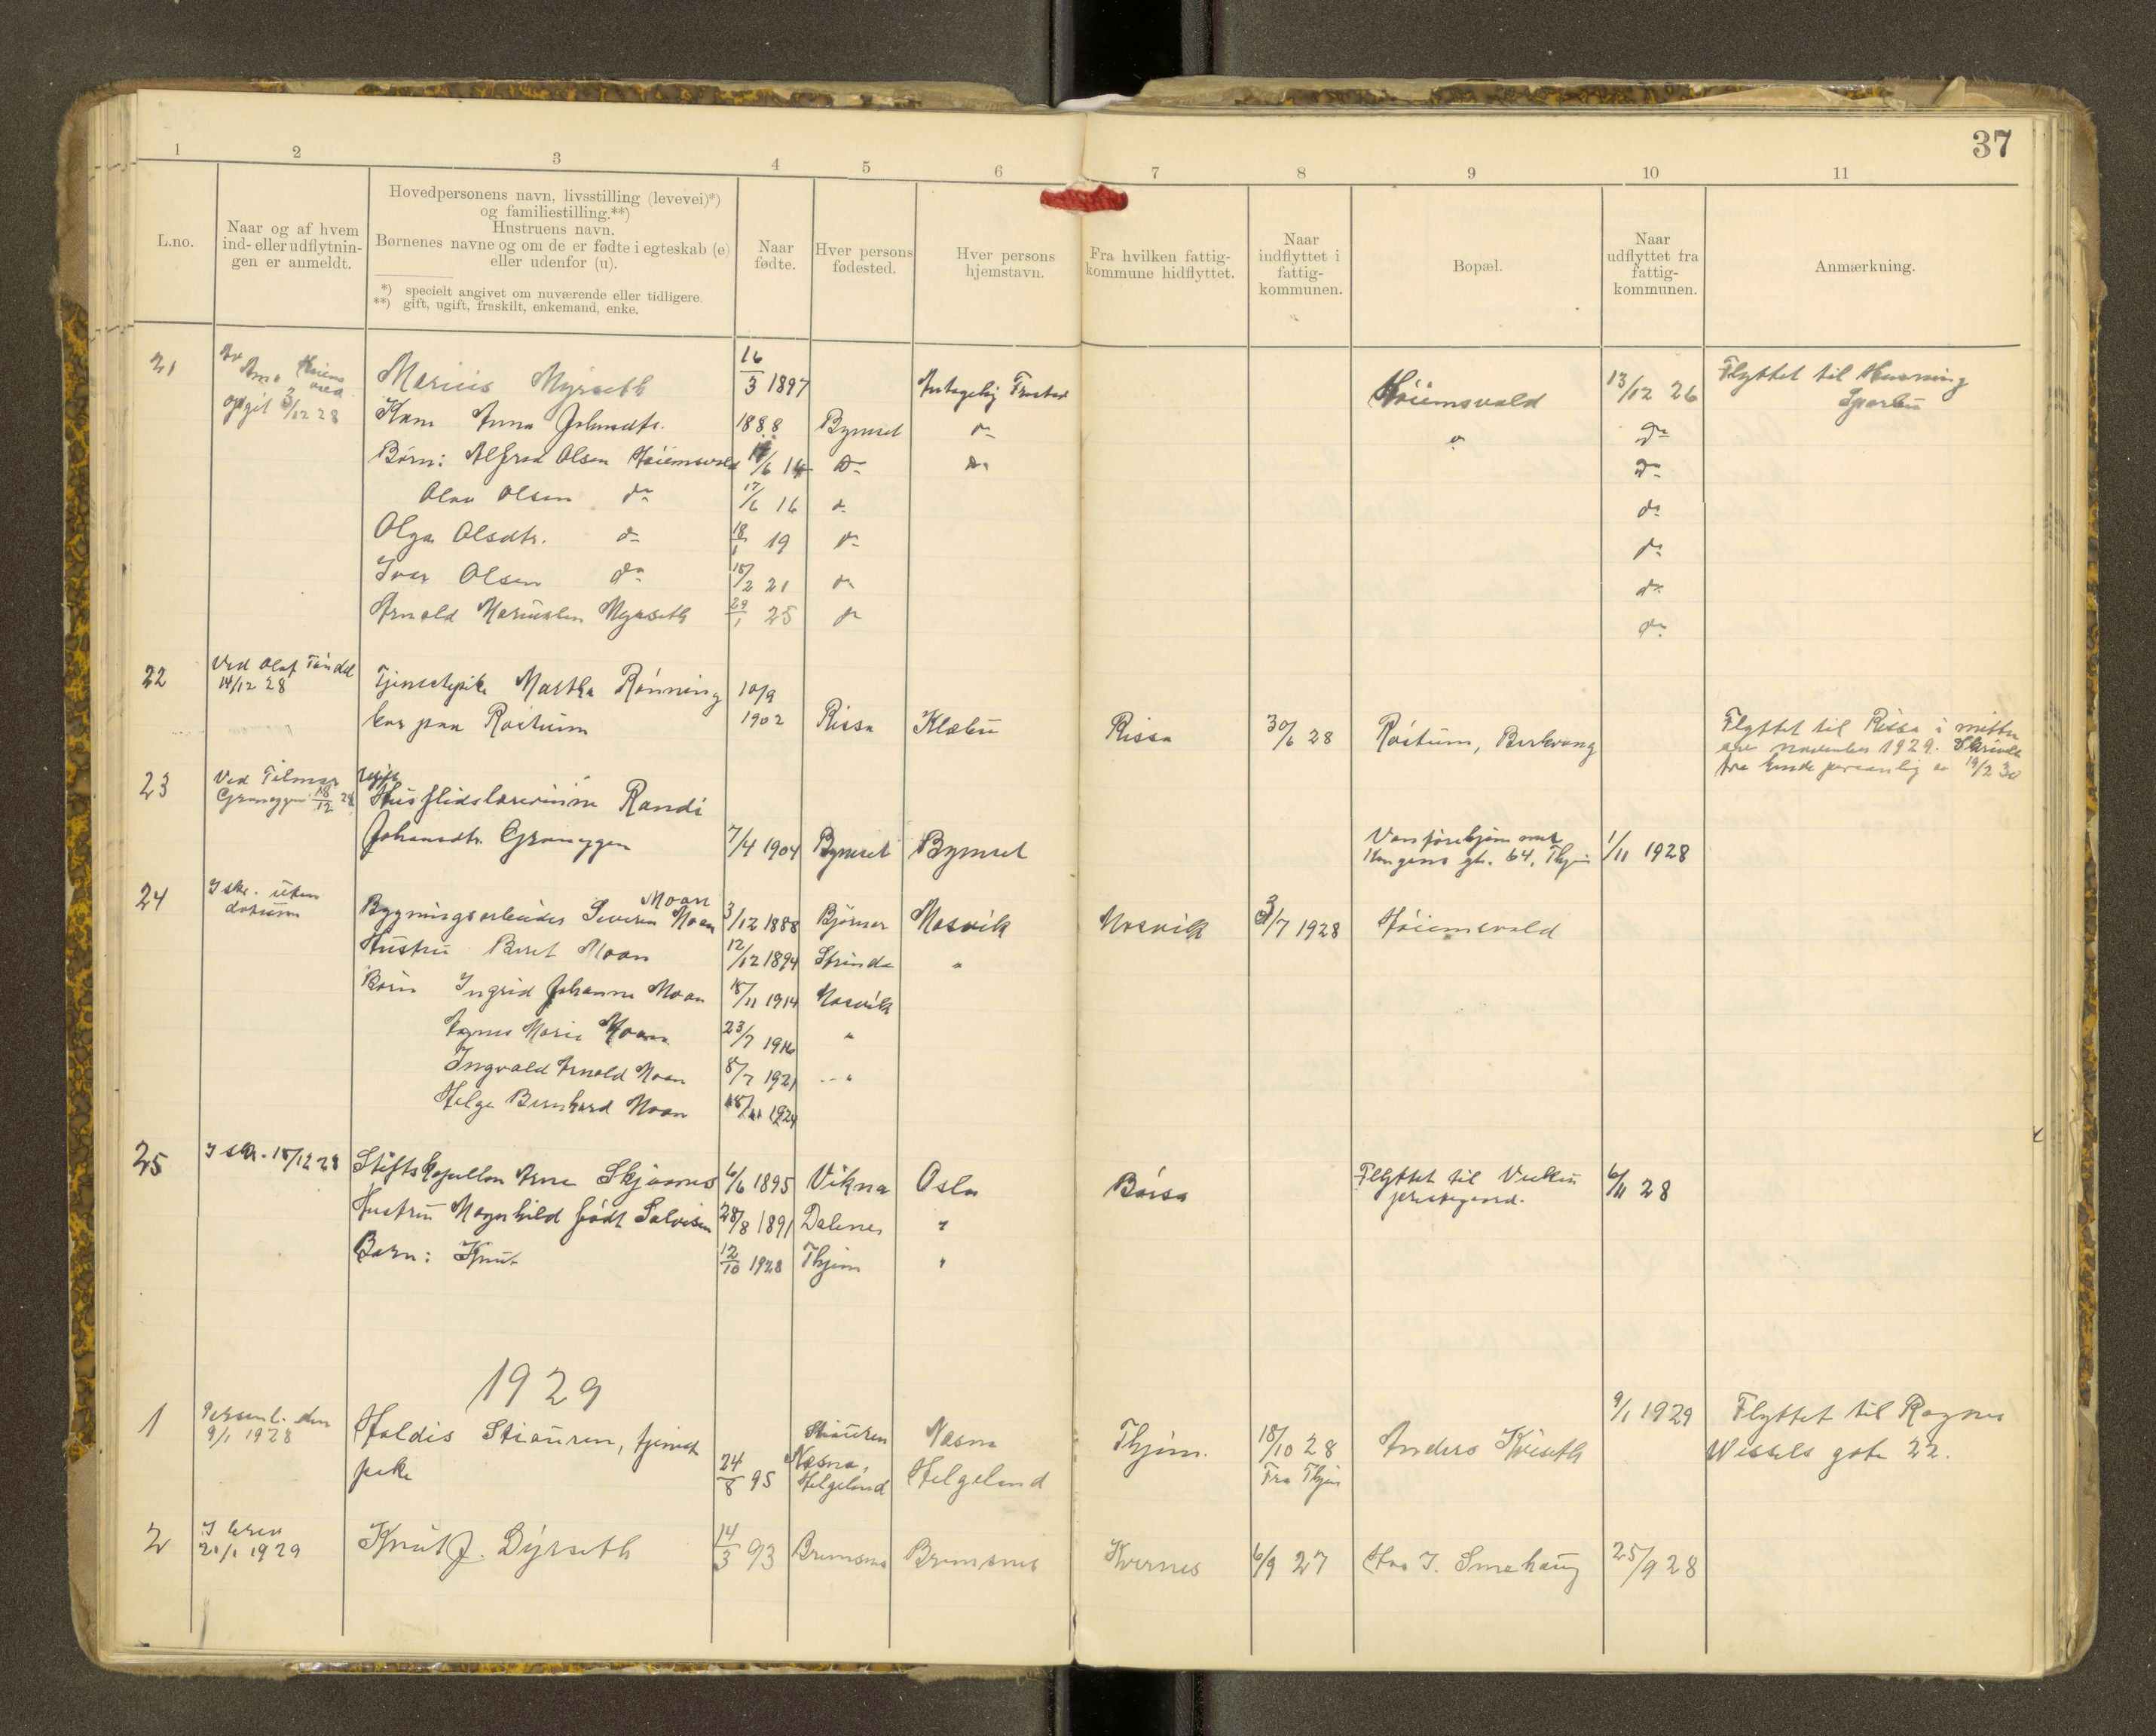 37
1 2 3 4 5 6 7 8 9 10 11
L.no.
Naar og af hvem
ind- eller udflytnin-
gen er anmeldt.
Hovedpersonens navn, livsstilling (levevei)*)
og familiestilling.**)
Hustruens navn.
Børnenes navne og om de er fødte i egteskab (e)
eller udenfor (u).
*) specielt angivet om nuværende eller tidligere.
**) gift, ugift, fraskilt, enkemand, enke.
Naar
fødte.
Hver persons
fødested.
Hver persons
hjemstavn.
Fra hvilken fattig-
kommune hidflyttet.
Naar
indflyttet i
fattig-
kommunen.
Bopæl.
Naar
udflyttet fra
fattig-
kommunen.
Anmærkning.
21 opgit 3/12 28 Marius Myrseth 16/3 1897 Antagelig Frosta Höiemsvald 13/12 26 Flyttet til Henning
Sparbu
Kone Anna Johansdtr. 1888 Bynset do " do
Börn: Alfred Olsen Höiemsvald 17/6 14 do do do
Olav Olsen do 17/6 16 do do
Olga Olsdtr. do 18/1 19 do do
Ivar Olsen do 18/2 21 do do
Arnold Mariussen Myrseth 29/1 25 do do
22 Ved Olaf
14/12 28
Tjenestepike Martha Rönning 10/9
bor paa Röstum 1902 Rissa Klæbu Rissa 30/6 28 Röstum, Flyttet til Rissa i midten
av november 1929.
19/2 30
23 Ved Tilmar
Graneggen 18/12 28
ugift
Husflidslærerinne Randi
Johansdtr. Graneggen 7/4 1904 Bynset Bynset Vanförehjemmet
Kongens gt. 64, Thjm 1/11 1928
24 I skr. uten
datum
Moan
Bygningsarbeider Severin Moan 3/12 1888 Björnør Mosvik Mosvik 3/7 1928 Höiemsvald
Hustru Beret Moan 12/12 1894 Strinda "
Börn Ingrid Johanne Moan 18/11 1914 Mosvik
Agnes Marie Moan 23/7 1916 "
Ingvald Arnold Moan 8/7 1921 "
Helge Bernhard Moan 18/11 1924
25 I skr. 15/12 28 Stiftskapellan Arne Skjærnes 6/6 1895 Vikna Oslo Börsa Flyttet til
prestegaard. 6/11 28
Hustru Magnhild födt Salvesen 28/8 1891 Dalenes "
Barn: Knut 12/10 1928 Thjem "
1929
1 Personl. den
9/1 1928
Haldis Stiauren, tjeneste
pike 24/8 95 Stiauren
Nesna,
Helgeland
Nesna
Helgeland
Thjem. 18/10 28
Fra Thjem
Anders Kviseth 9/1 1929 Flyttet til Ragnes
Wessels gate 22.
2 I brev
21/1 1929
Knut J. Dyrseth 14/3 93 Bremsnes Bremsnes Kvernes 6/9 27 Hos I. Smehaug 25/9 28